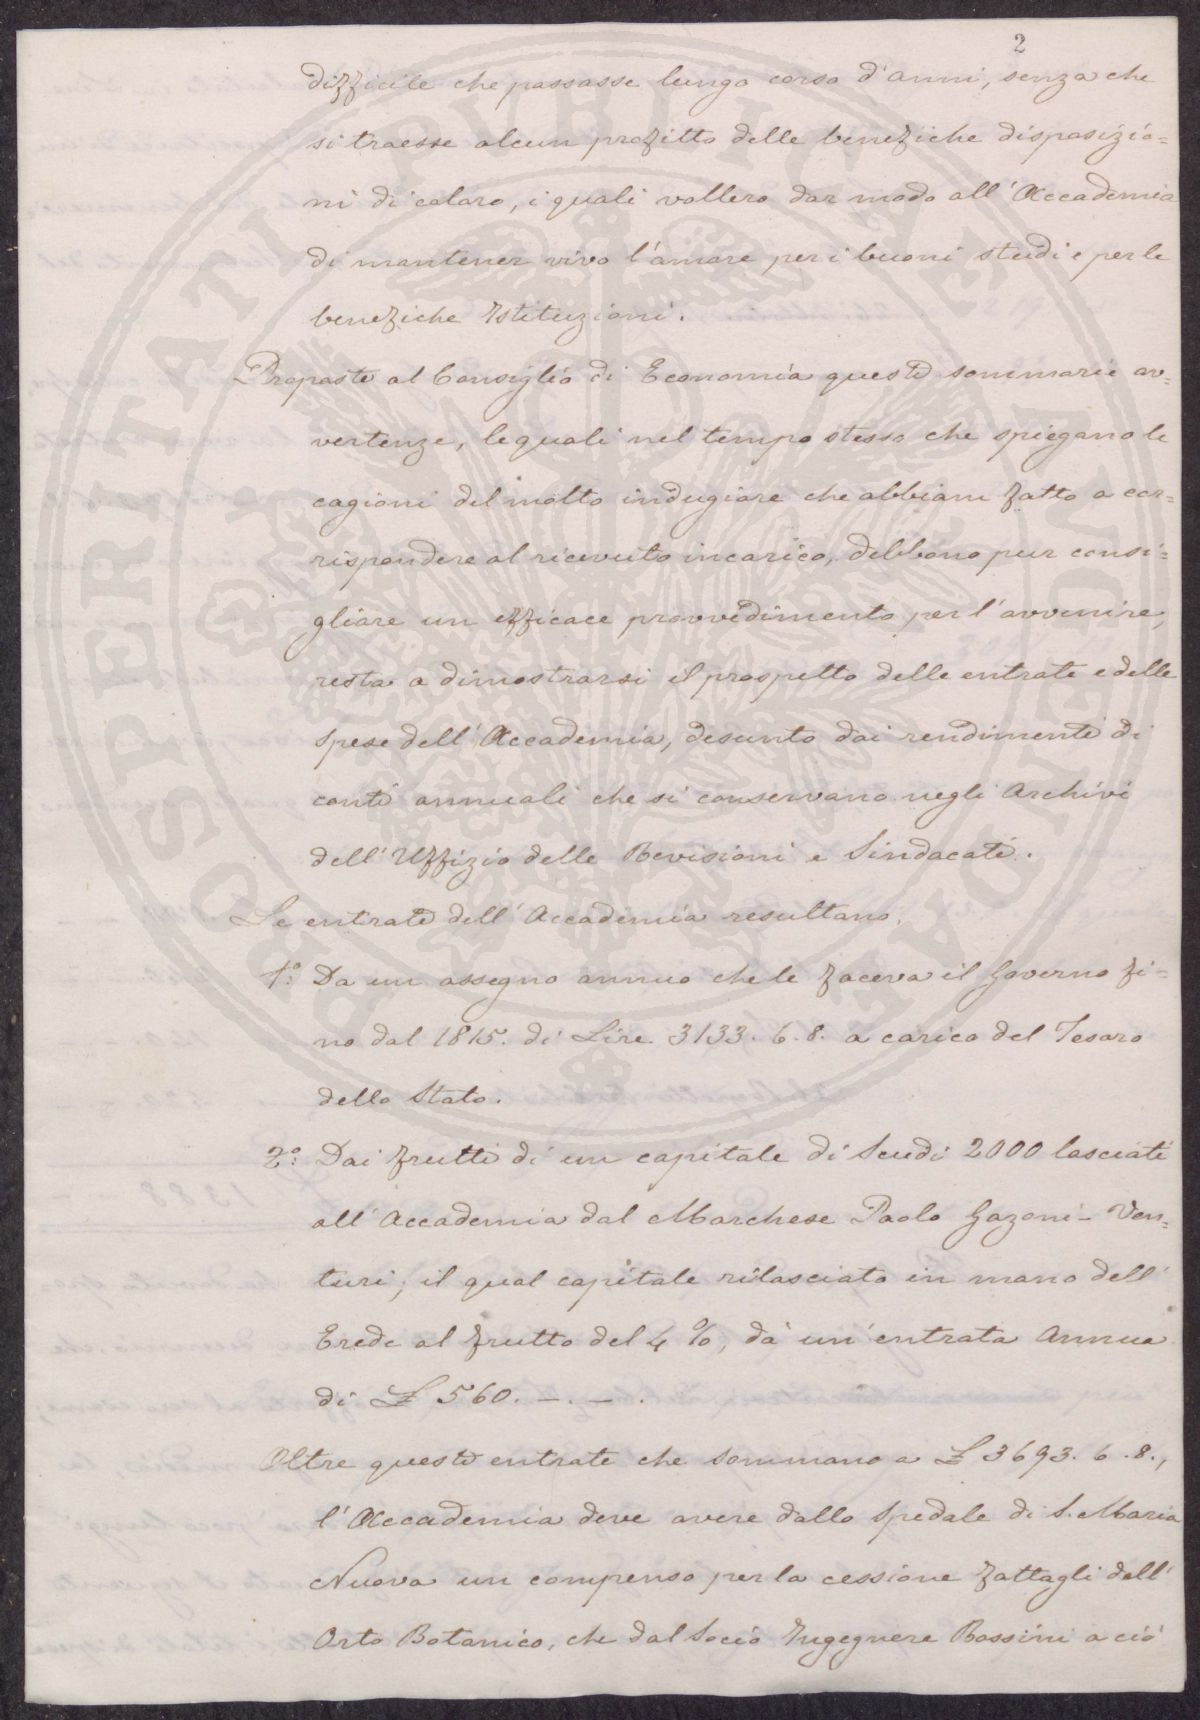 2
difficile che passasse lungo corso d'anni, senza che
si traesse alcun profitto delle benefiche disposizio=
ni di coloro, i quali vollero dar modo all'Accademia
di mantener vivo l'amore per i buoni studi e per le
benefiche Istituzioni.
Proposte al Consiglio di Economia queste sommarie av=
vertenze, le quali nel tempo stesso che spiegano le
cagioni del molto indugiare che abbiam fatto a cor=
rispondere al ricevuto incarico, debbono pur consi=
gliare un efficace provvedimento per l'avvenire,
resta a dimostrarsi il prospetto delle entrate e delle
spese dell'Accademia, desunto dai rendimenti di
conti annuali che si conservano negli Archivi
dell'Uffizio delle Revisioni e Sindacati.
Le entrate dell'Accademia resultano.
1º: Da un assegno annuo che le faceva il Governo fi=
no dal 1815. di Lire 3133. 6. 8. a carico del Tesoro
dello Stato.
2º: Dai frutti di un capitale di Scudi 2000 lasciati
all'Accademia dal Marchese Paolo Gazoni-Ven=
turi; il qual capitale rilasciato in mano dell'
Erede al frutto del 4 %, dà un'entrata Annua
di £ 560. —. —.
Oltre queste entrate che sommano a £ 3693. 6. 8.,
l'Accademia deve avere dallo Spedale di S. Maria
Nuova un compenso per la cessione fattagli dell'
Orto Botanico, che dal Socio Ingegnere Bassini a ciò
PROSPERITATI PVBLICAE AVGENDAE